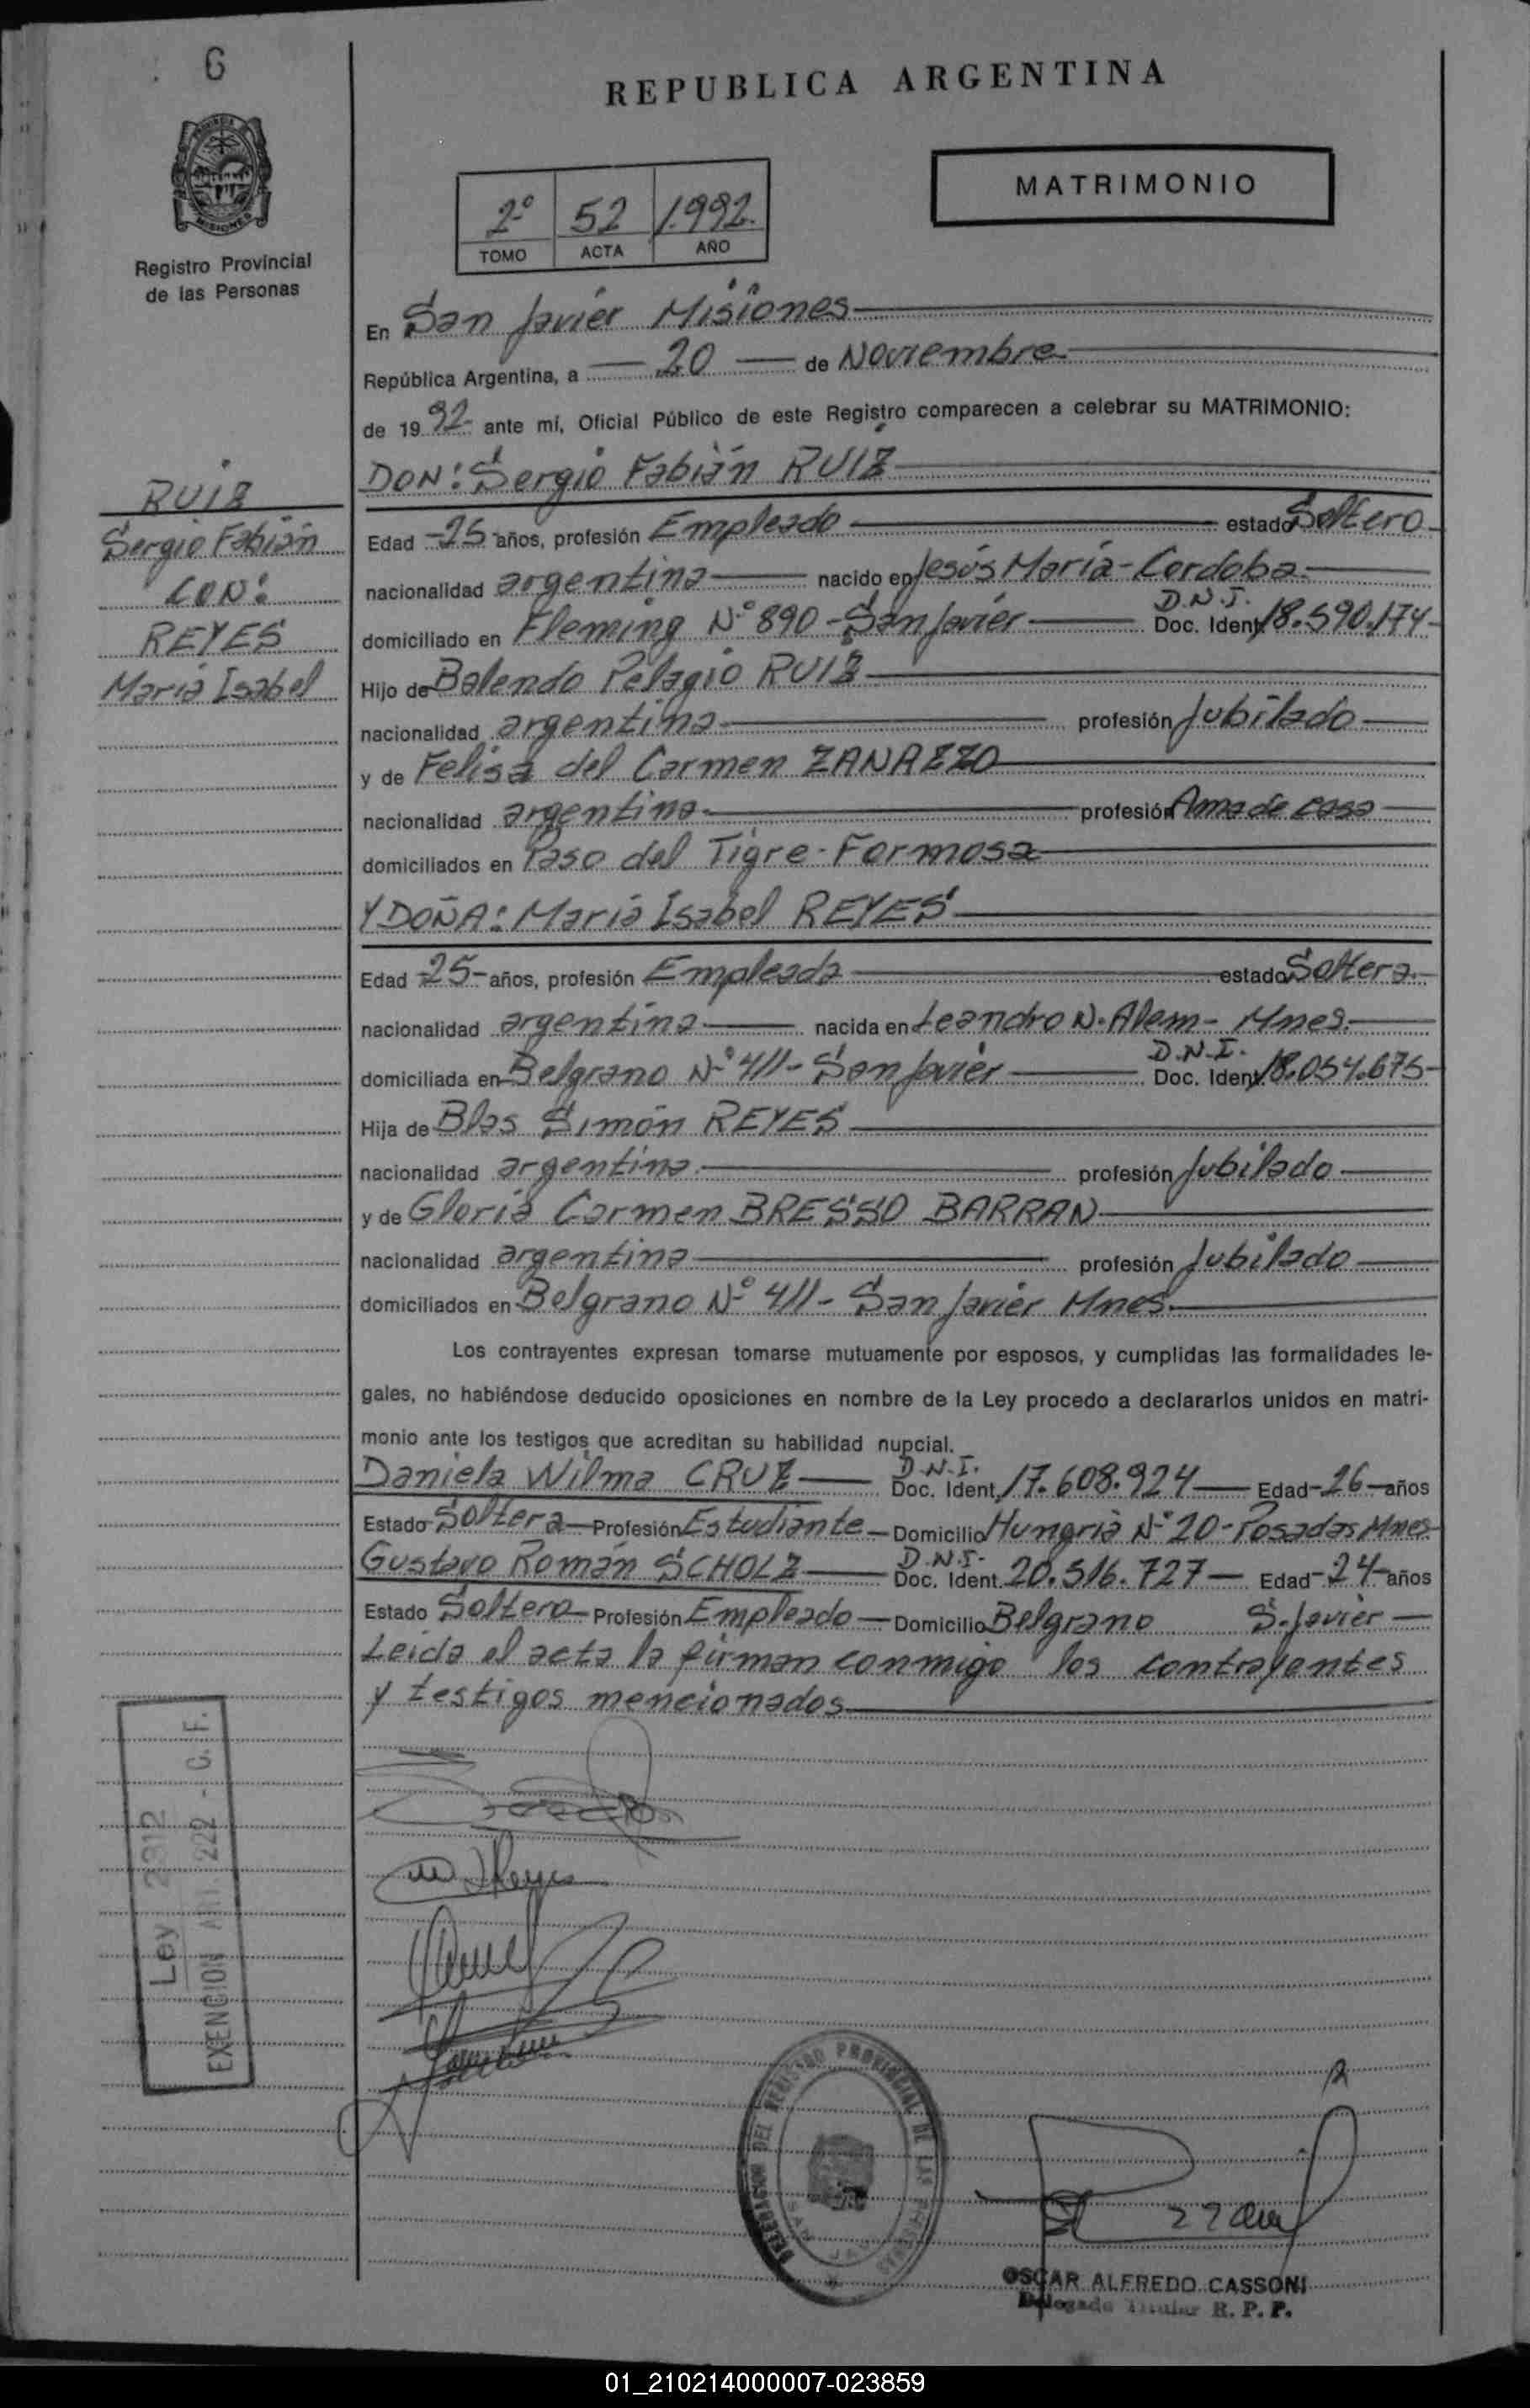 6
REPUBLICA ARGENTINA
PROVINCIA DE
MISIONES
Registro Provincial
de las Personas
MATRIMONIO
2º 52 1.992.
TOMO ACTA AÑO
En San Javier Misiones
República Argentina, a 20 de Noviembre
de 1992 ante mí, Oficial Público de este Registro comparecen a celebrar su MATRIMONIO:
DON: Sergio Fabián RUIZ
RUIZ
Sergio Fabián
CON:
REYES
María Isabel
Edad -25- años, profesión Empleado estado Soltero
nacionalidad argentina nacido en Jesús María - Cordoba.
domiciliado en Fleming Nº 890 - San Javier D.N.I. Doc. Ident. 18.590.174-
Hijo de Balendo Pelagio RUIZ
nacionalidad argentina profesión Jubilado
y de Felisa del Carmen ZANAZZO
nacionalidad argentina profesión Ama de casa
domiciliados en Paso del Tigre - Formosa
Y DOÑA: María Isabel REYES
Edad 25- años, profesión Empleada estado Soltera.
nacionalidad argentina nacida en Leandro N. Alem - Mnes.
domiciliada en Belgrano Nº 411 - San Javier D.N.I. Doc. Ident. 18.054.675-
Hija de Blas Simón REYES
nacionalidad argentina. profesión Jubilado
y de Gloria Carmen BRESSO BARRAN
nacionalidad argentina profesión Jubilado
domiciliados en Belgrano Nº 411 - San Javier Mnes.
Los contrayentes expresan tomarse mutuamente por esposos, y cumplidas las formalidades le-
gales, no habiéndose deducido oposiciones en nombre de la Ley procedo a declararlos unidos en matri-
monio ante los testigos que acreditan su habilidad nupcial.
Daniela Wilma CRUZ D.N.I. Doc. Ident. 17.608.924 Edad -26- años
Estado Soltera Profesión Estudiante Domicilio Hungría Nº 20 - Posadas Mnes
Gustavo Román SCHOLZ D.N.I. Doc. Ident. 20.516.727 Edad -24- años
Estado Soltero Profesión Empleado Domicilio Belgrano S. Javier
Leida el acta la firman conmigo los contrayentes
y testigos mencionados
Ley 2312
EXENCION Art. 222 - C. F.
DELEGACION DEL REGISTRO PROVINCIAL DE LAS PERSONAS
OSCAR ALFREDO CASSONI
Delegado Titular R. P. P.
01_210214000007-023859